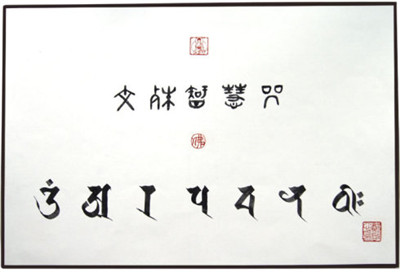 文殊智慧咒
𑖌𑖽 𑖀 𑖨 𑖢 𑖓 𑖡 𑖠𑖱𑖾